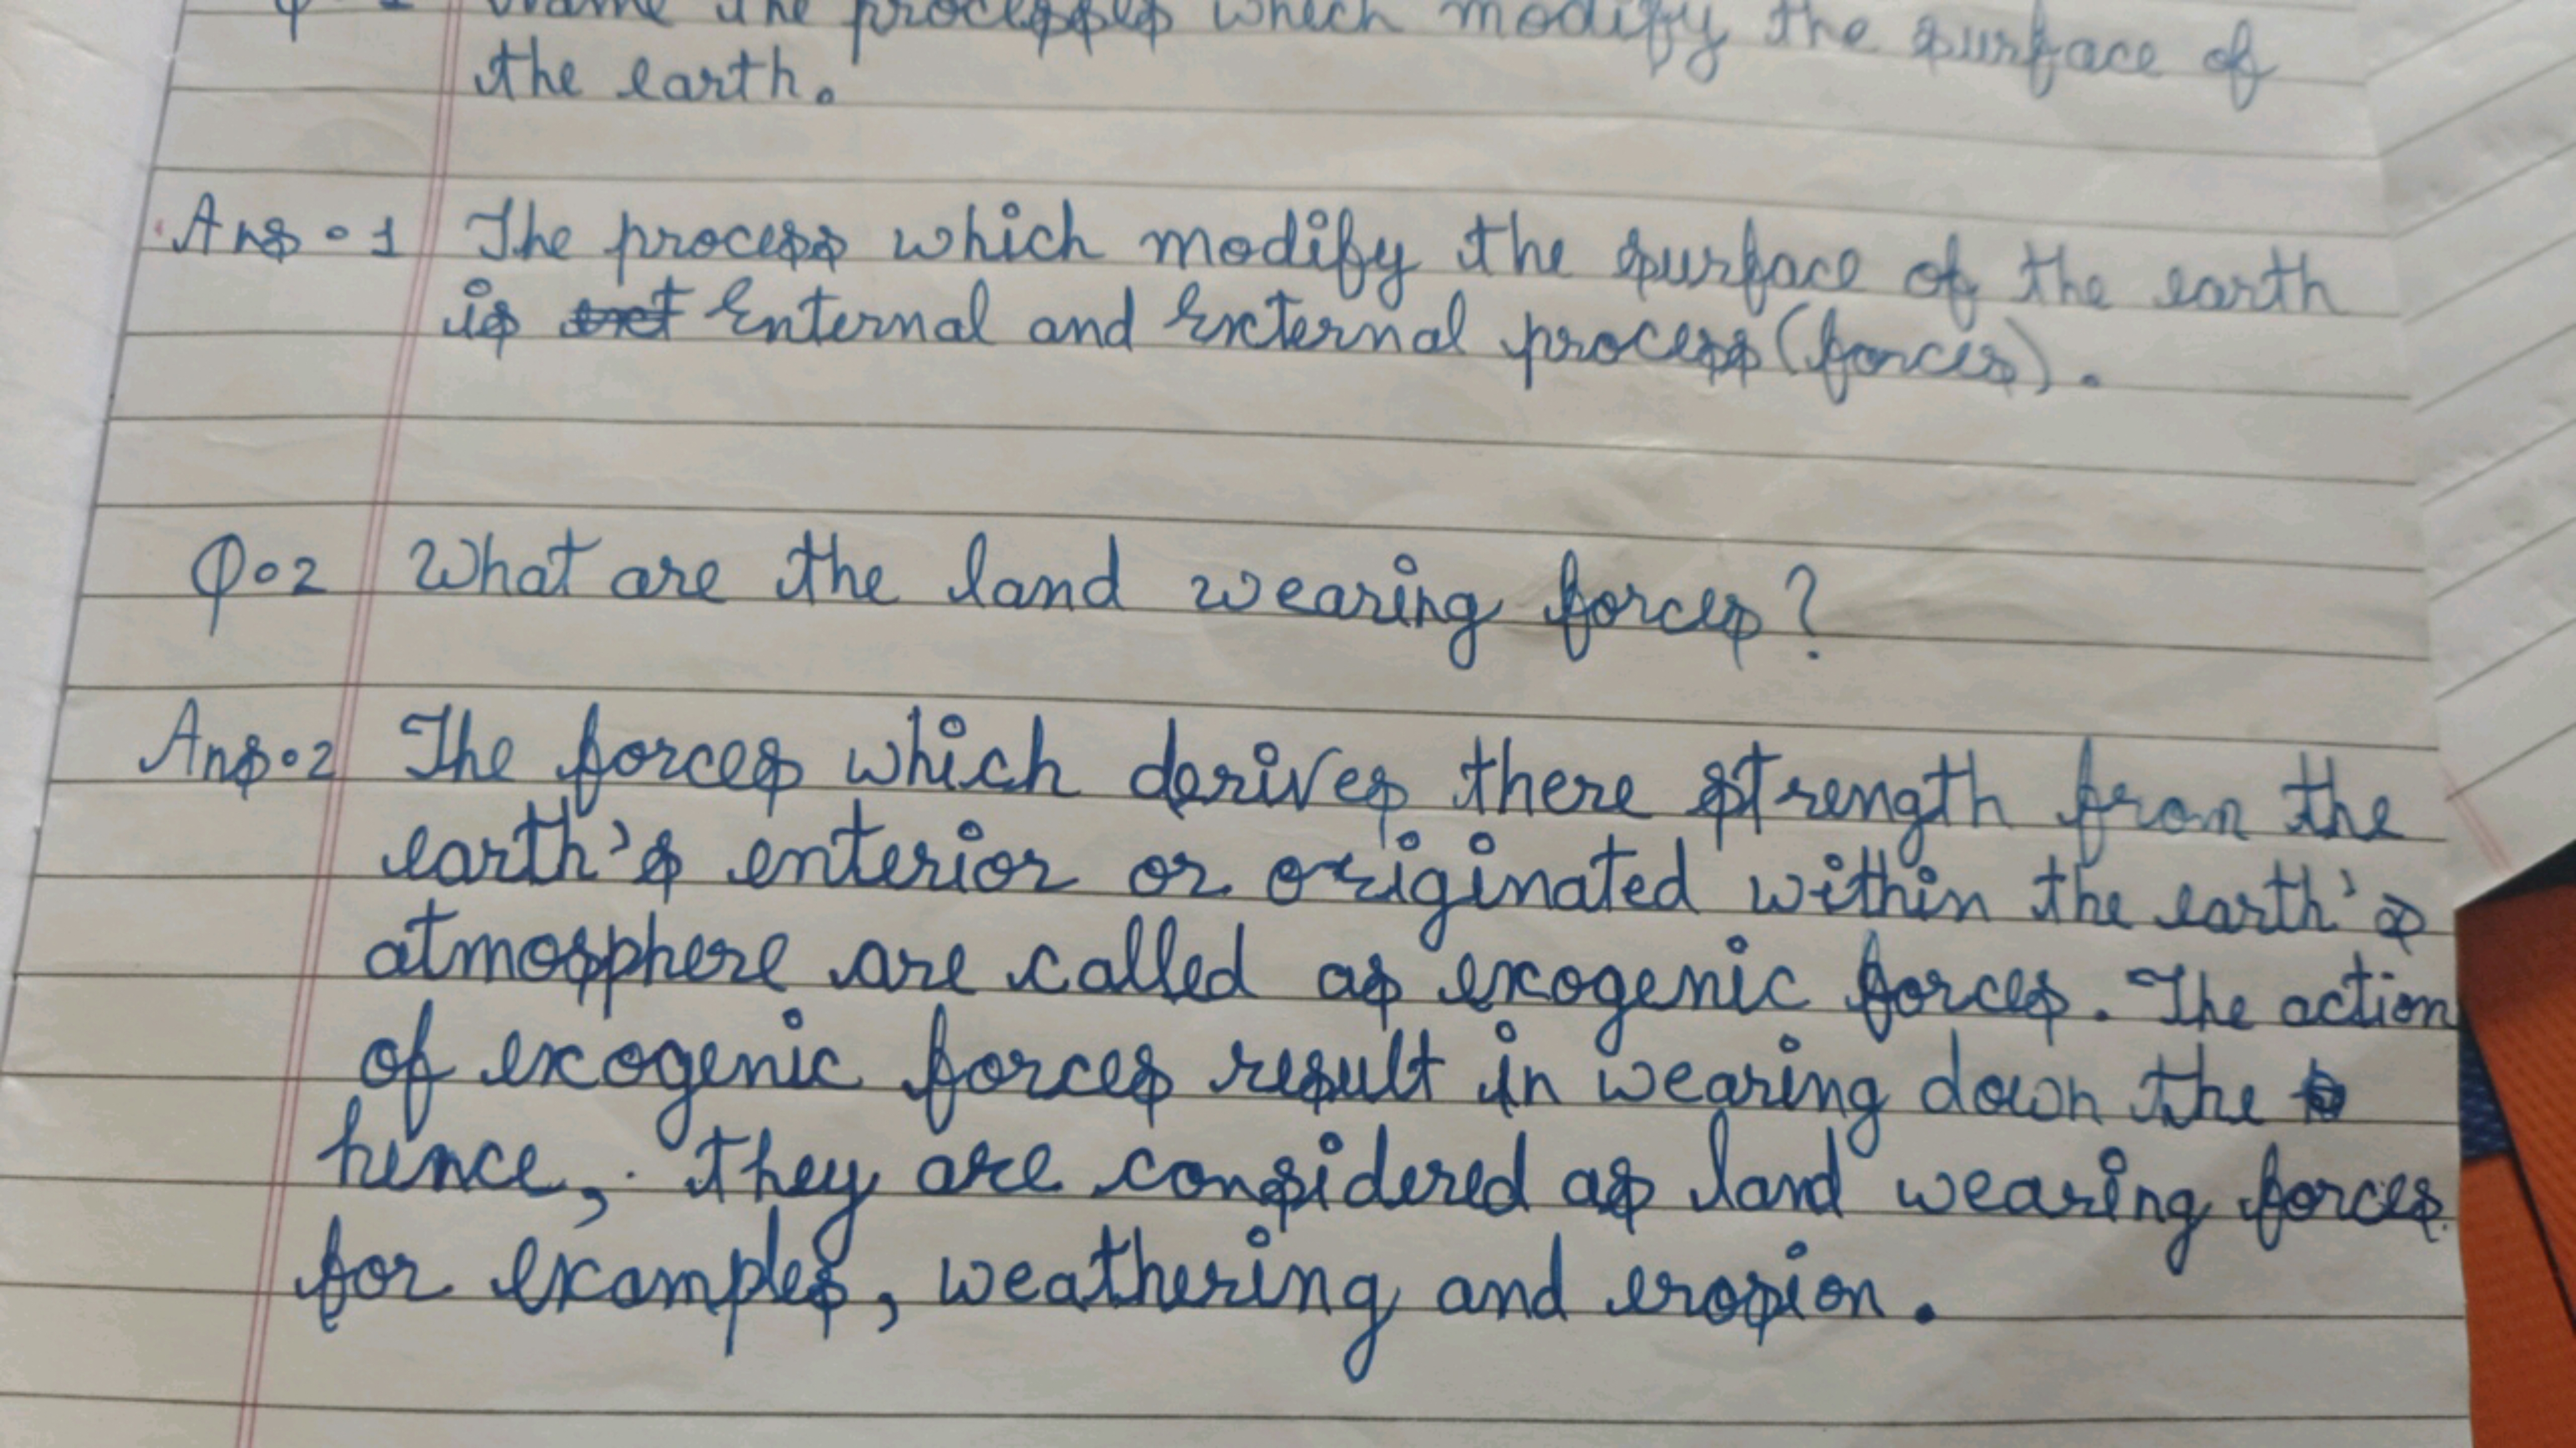 Name the processes which modify the surface of
the earth.
Ans. 1 The process which modify the surface of the earth
is Enternal and External process (forces).
Q.2 What are the land wearing forces?
Ans.2 The forces which derives there strength from the
earth's enterior or originated within the earth's
atmosphere are called as exogenic forces. The action
of exogenic forces result in wearing down the
hence, they are considered as land wearing forces.
for examples, weathering and erosion.